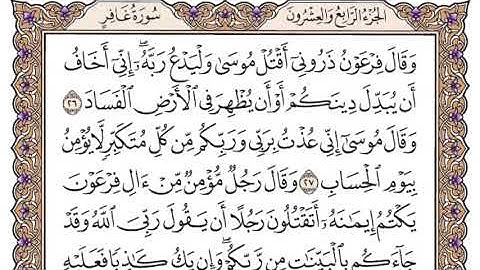 سُورَةُ غَافِرٍ الجُزْءُ الرَّابِعُ وَالعِشْرُونَ
وَقَالَ فِرْعَوْنُ ذَرُونِىٓ أَقْتُلْ مُوسَىٰ وَلْيَدْعُ رَبَّهُۥٓ ۖ إِنِّىٓ أَخَافُ
أَن يُبَدِّلَ دِينَكُمْ أَوْ أَن يُظْهِرَ فِى ٱلْأَرْضِ ٱلْفَسَادَ ٢٦
وَقَالَ مُوسَىٰٓ إِنِّى عُذْتُ بِرَبِّى وَرَبِّكُم مِّن كُلِّ مُتَكَبِّرٍ لَّا يُؤْمِنُ
بِيَوْمِ ٱلْحِسَابِ ٢٧ وَقَالَ رَجُلٌ مُّؤْمِنٌ مِّنْ ءَالِ فِرْعَوْنَ
يَكْتُمُ إِيمَـٰنَهُۥٓ أَتَقْتُلُونَ رَجُلًا أَن يَقُولَ رَبِّىَ ٱللَّهُ وَقَدْ
جَآءَكُم بِٱلْبَيِّنَـٰتِ مِن رَّبِّكُمْ ۖ وَإِن يَكُ كَـٰذِبًا فَعَلَيْهِ